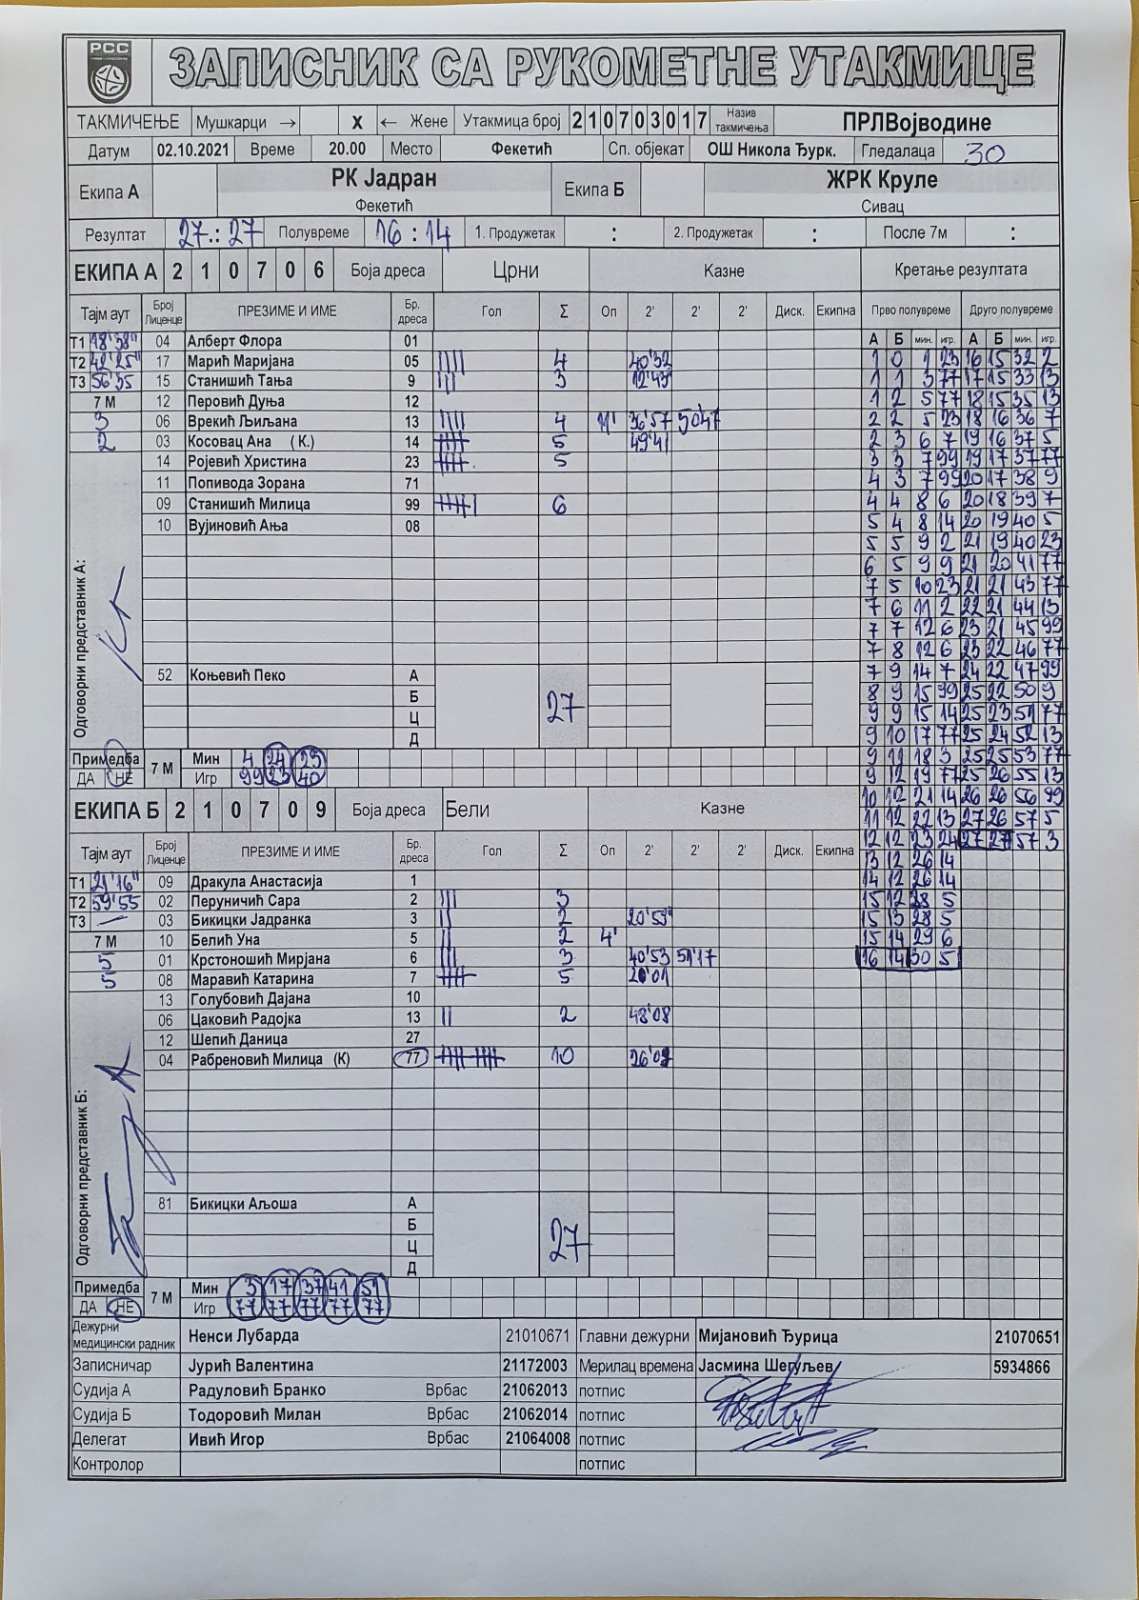 РСС
ЗАПИСНИК СА РУКОМЕТНЕ УТАКМИЦЕ
ТАКМИЧЕЊЕ Мушкарци → X ← Жене Утакмица број 2 1 0 7 0 3 0 1 7 Назив такмичења ПРЛВојводине
Датум 02.10.2021 Време 20.00 Место Фекетић Сп. објекат ОШ Никола Ђурк. Гледалаца 30
Екипа А РК Јадран Екипа Б ЖРК Круле
Фекетић Сивац
Резултат 27 : 27 Полувреме 16 : 14 1. Продужетак : 2. Продужетак : После 7м :
ЕКИПА А 2 1 0 7 0 6 Боја дреса Црни Казне Кретање резултата
Тајм аут Број Лиценце ПРЕЗИМЕ И ИМЕ Бр. дреса Гол Σ Оп 2' 2' 2' Диск. Екипна Прво полувреме Друго полувреме
А Б мин. игр. А Б мин. игр.
Т1 18'38" 04 Алберт Флора 01
Т2 42'25" 17 Марић Маријана 05 4 40'32
Т3 56'35 15 Станишић Тања 9 3 12'43
7 М 12 Перовић Дуња 12
3 06 Врекић Љиљана 13 4 11' 36'57 50'47
2 03 Косовац Ана (К.) 14 5 49'41
14 Ројевић Христина 23 5
11 Попивода Зорана 71
09 Станишић Милица 99 6
10 Вујиновић Ања 08
1 0 1 23 16 15 32 2
1 1 3 77 17 15 33 13
1 2 5 77 18 15 35 13
2 2 5 23 18 16 36 7
2 3 6 7 19 16 37 5
3 3 7 99 19 17 37 77
4 3 7 99 20 17 38 9
4 4 8 6 20 18 39 7
5 4 8 14 20 19 40 5
5 5 9 2 21 19 40 23
6 5 9 9 21 20 41 77
7 5 10 23 21 21 43 77
7 6 11 2 22 21 44 13
7 7 12 6 23 21 45 99
7 8 12 6 23 22 46 77
7 9 14 7 24 22 47 99
8 9 15 99 25 22 50 9
9 9 15 14 25 23 51 77
9 10 17 77 25 24 52 13
9 11 18 3 25 25 53 77
9 12 19 77 25 26 55 13
10 12 21 14 26 26 56 99
11 12 22 13 27 26 57 5
12 12 23 24 27 27 57 3
13 12 26 14
14 12 26 14
15 12 28 5
15 13 28 5
15 14 29 6
16 14 30 5
Одговорни представник А:
52 Коњевић Пеко А
Б
Ц
Д
27
Примедба 7 М Мин 4 24 29
ДА НЕ Игр 99 23 40
ЕКИПА Б 2 1 0 7 0 9 Боја дреса Бели Казне
Тајм аут Број Лиценце ПРЕЗИМЕ И ИМЕ Бр. дреса Гол Σ Оп 2' 2' 2' Диск. Екипна
Т1 21'16" 09 Дракула Анастасија 1
Т2 59'55 02 Перуничић Сара 2 3
Т3 — 03 Бикицки Јадранка 3 2 20'59
7 М 10 Белић Уна 5 2 4'
5 01 Крстоношић Мирјана 6 3 40'53 51'17
5 08 Маравић Катарина 7 5 26'01
13 Голубовић Дајана 10
06 Цаковић Радојка 13 2 48'08
12 Шепић Даница 27
04 Рабреновић Милица (К) 77 10 26'02
Одговорни представник Б:
81 Бикицки Аљоша А
Б
Ц
Д
27
Примедба 7 М Мин 3 17 37 41 51
ДА НЕ Игр 77 77 77 77 77
Дежурни медицински радник Ненси Лубарда 21010671 Главни дежурни Мијановић Ђурица 21070651
Записничар Јурић Валентина 21172003 Мерилац времена Јасмина Шегуљев 5934866
Судија А Радуловић Бранко Врбас 21062013 потпис
Судија Б Тодоровић Милан Врбас 21062014 потпис
Делегат Ивић Игор Врбас 21064008 потпис
Контролор потпис